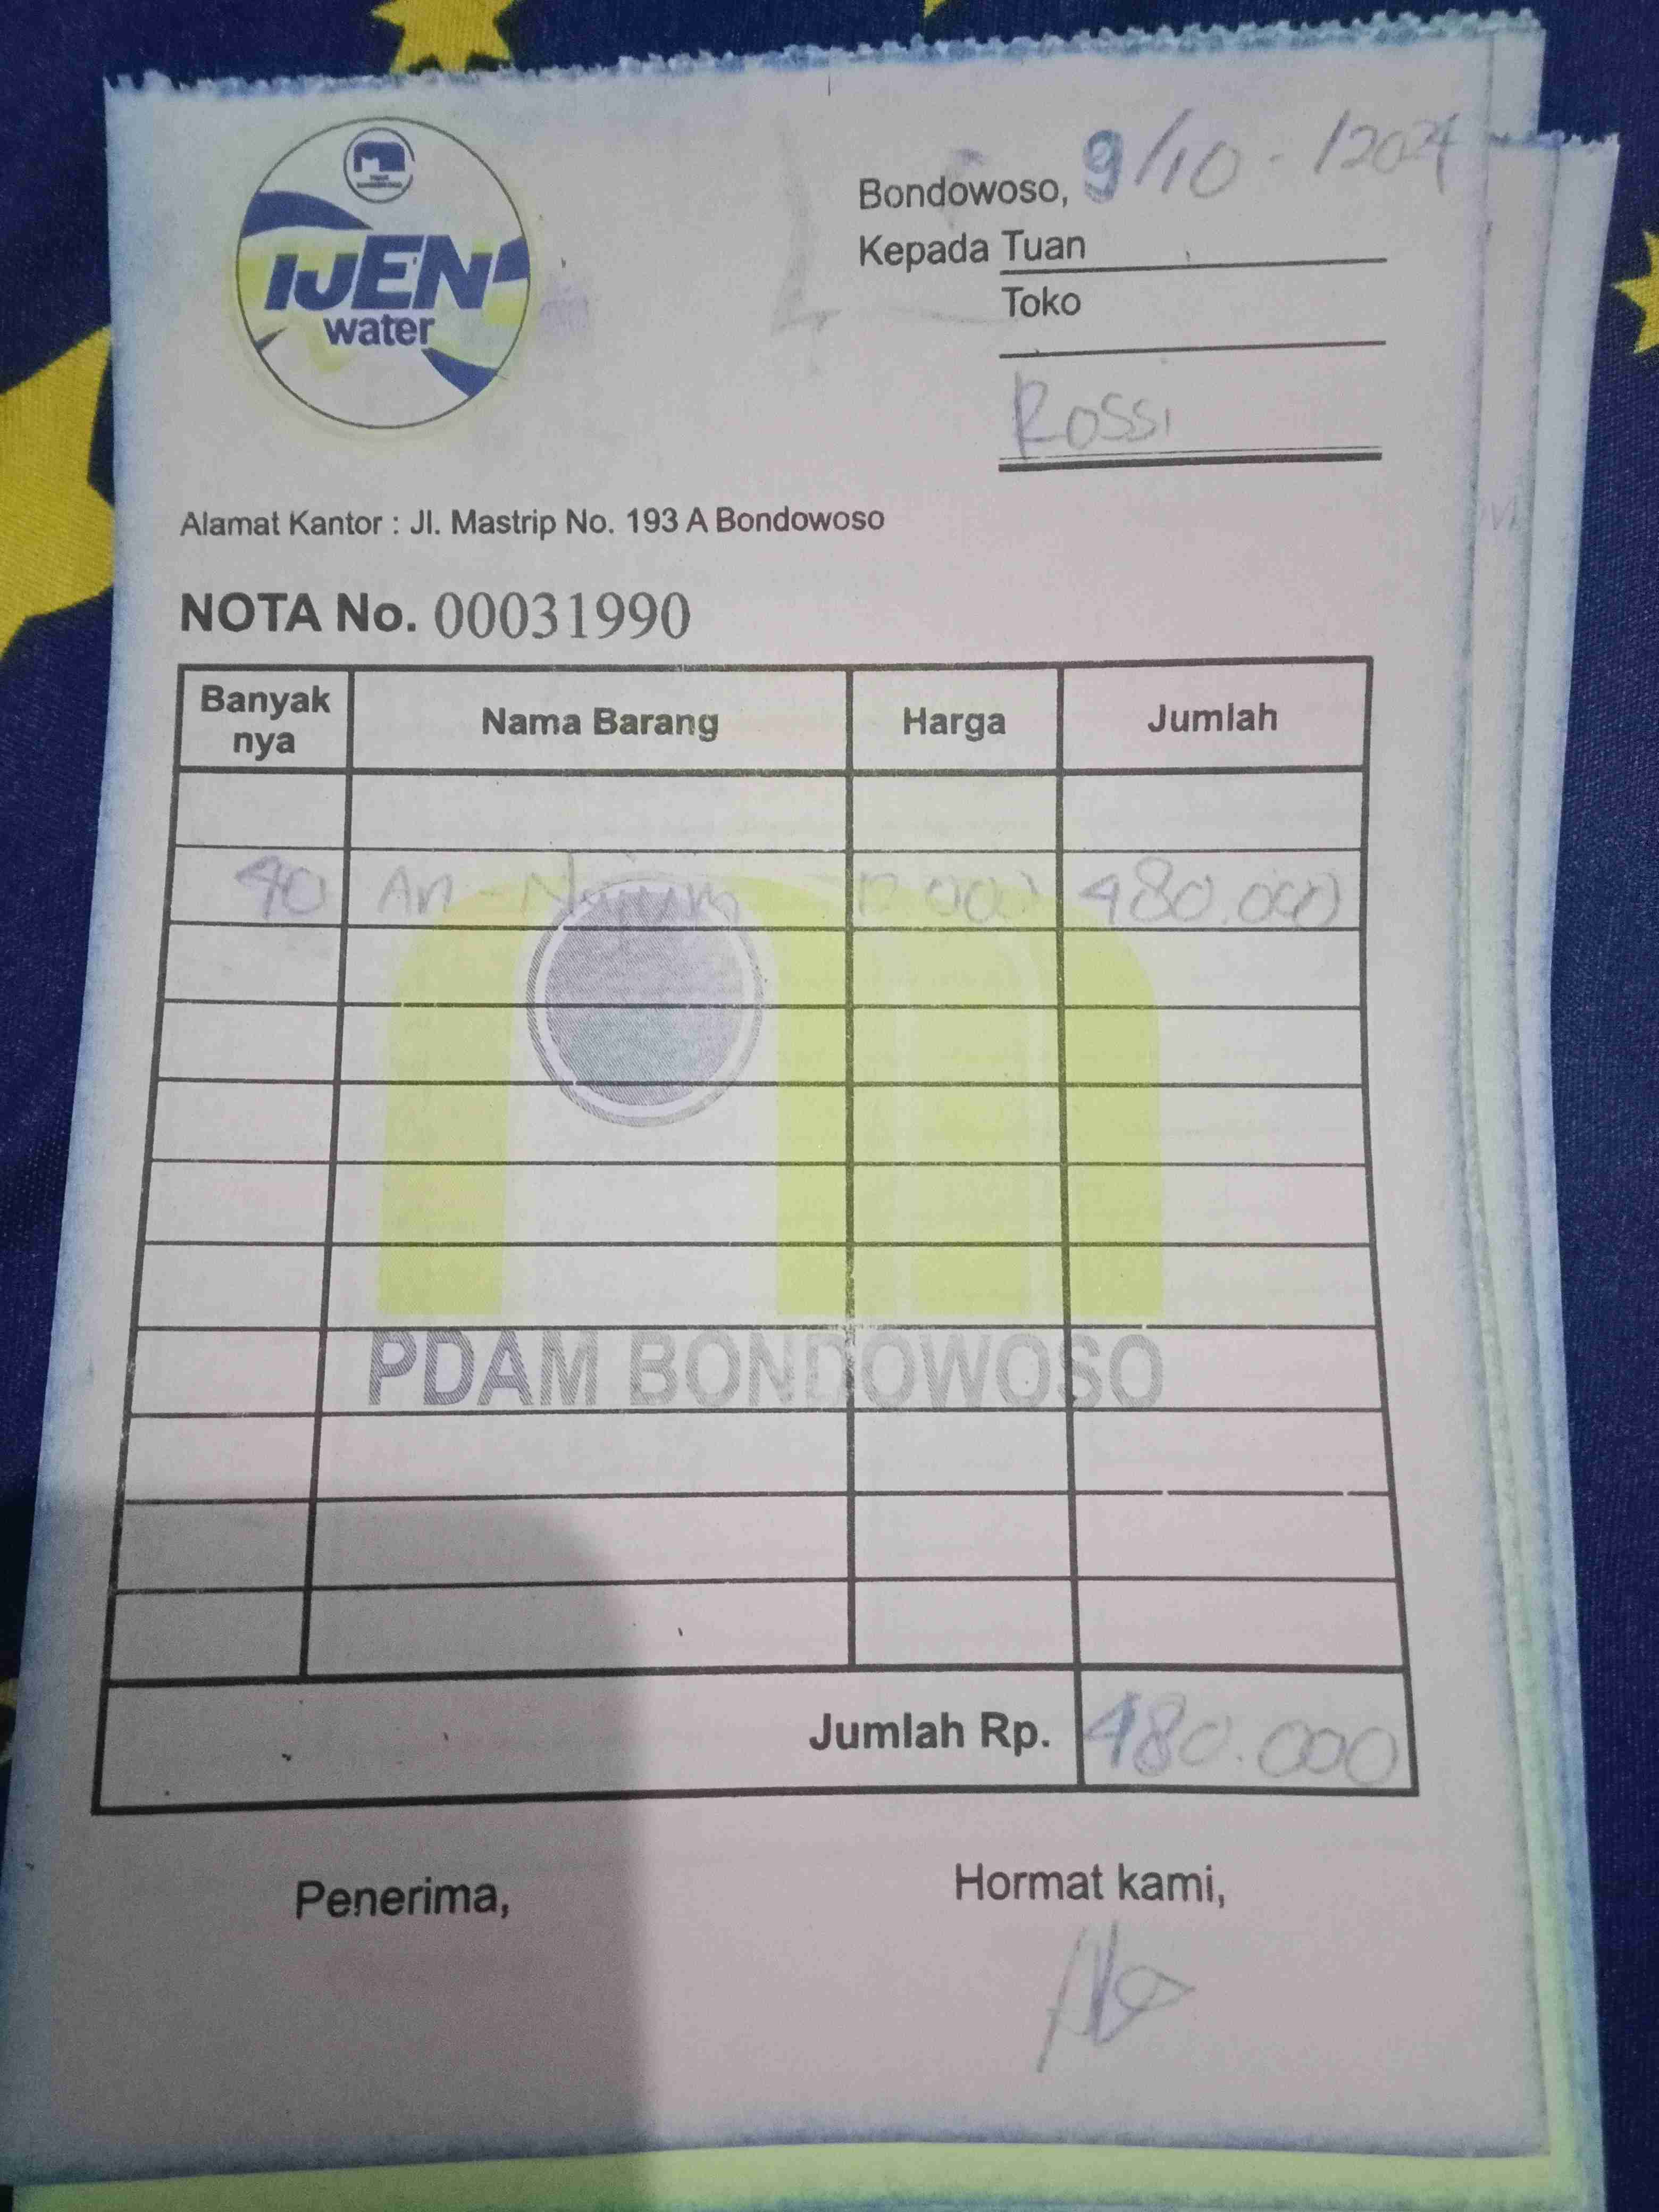 IJEN
water
Bondowoso, 9/10-/2024
Kepada Tuan
Toko
Rossi
Alamat Kantor : Jl. Mastrip No. 193 A Bondowoso
NOTA No. 00031990
Banyak nya Nama Barang Harga Jumlah
40 An-Nujum 12.000 480.000
PDAM BONDOWOSO
Jumlah Rp. 480.000
Penerima, Hormat kami,